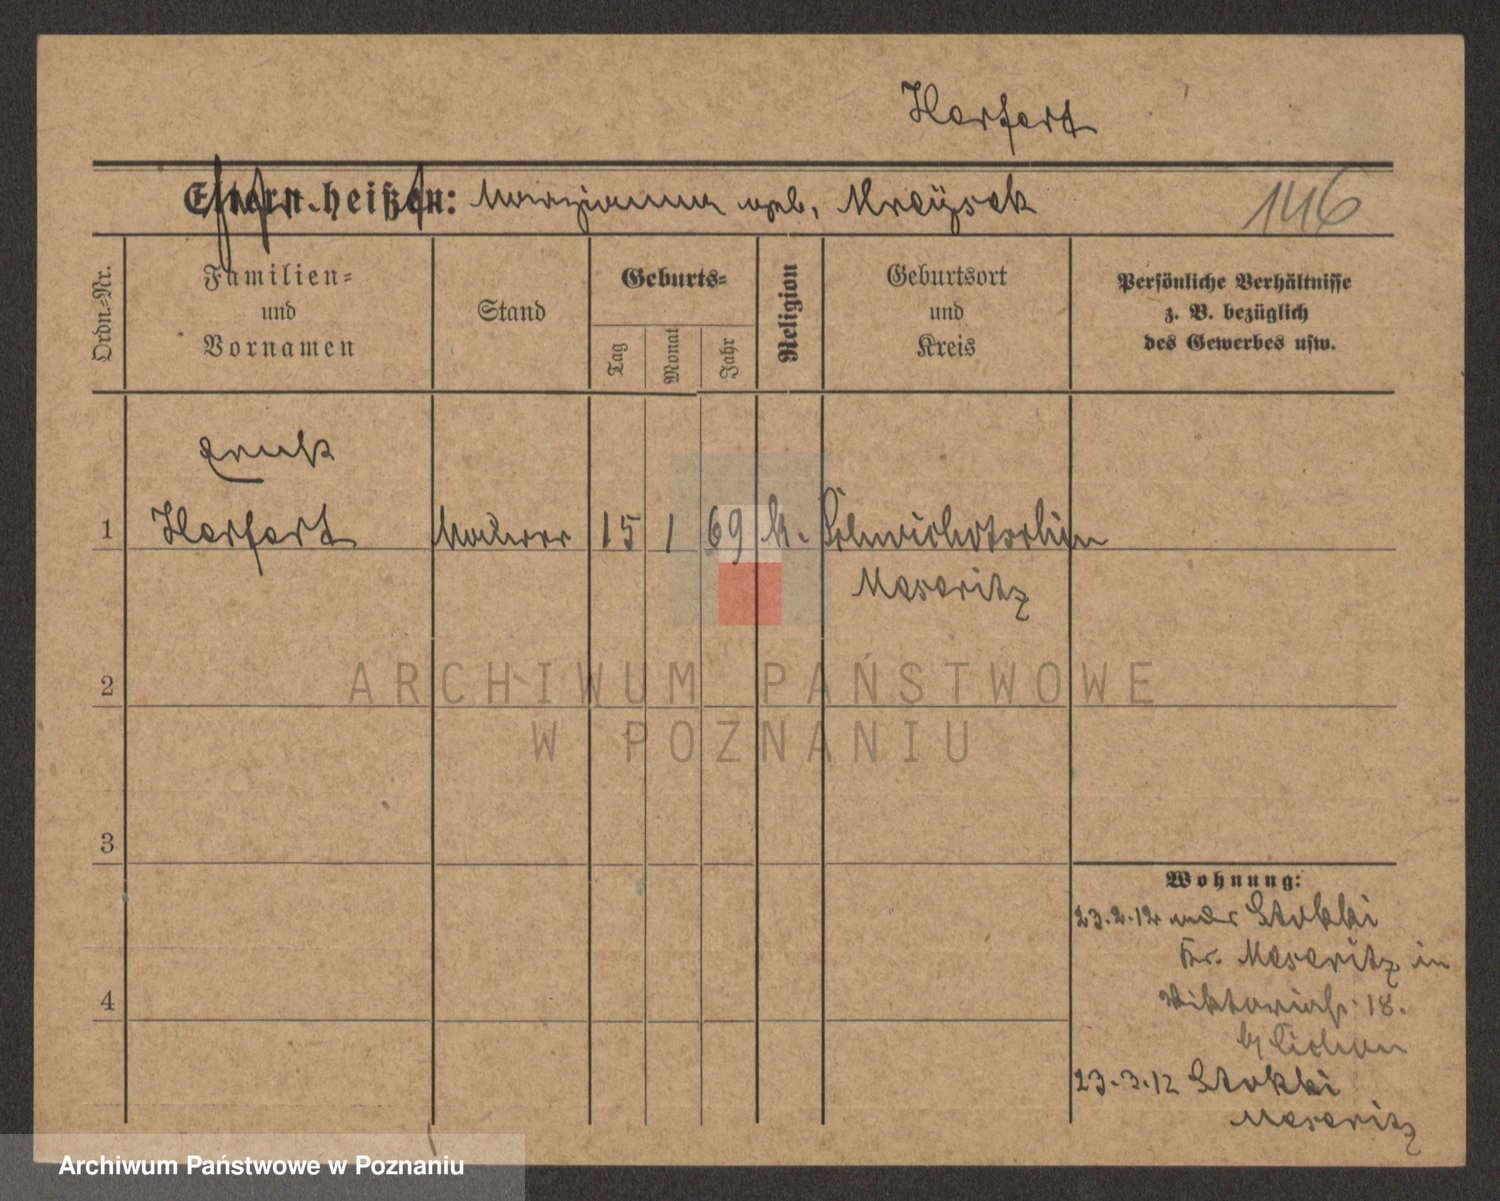 Herfert
Eltern heißen: Marzianna geb. Kraysek
146
Ordn.-Nr.
Familien-
und
Vornamen
Stand
Geburts-
Tag
Monat
Jahr
Religion
Geburtsort
und
Kreis
Persönliche Verhältnisse
z. B. bezüglich
des Gewerbes usw.
1
Herfert
Maurer
15
1
69
k.
Meseritz
2
3
4
Wohnung:
23.2.12 aus Stokki
Kr. Meseritz in
Viktoriastr. 18.
b/ Cichon
23.3.12 Stokki
Meseritz
ARCHIWUM PAŃSTWOWE
W POZNANIU
Archiwum Państwowe w Poznaniu